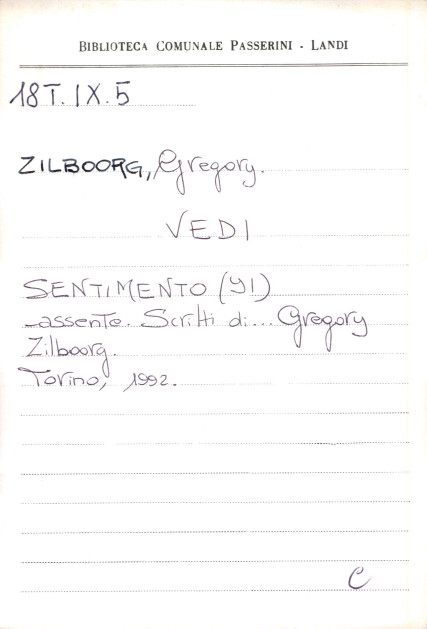 BIBLIOTECA COMUNALE PASSERINI - LANDI
18T.IX.5
ZILBOORG, Gregory.
VEDI
SENTIMENTO (YI)
-assente. Scritti di... Gregory
Zilboorg.
Torino, 1992.
C